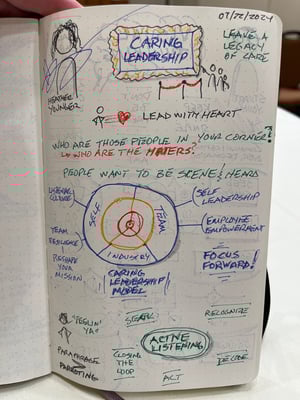 07/22/2024
CARING
LEADERSHIP
LEAVE A
LEGACY
OF CARE
HEATHER
YOUNGER
LEAD WITH HEART
WHO ARE THOSE PEOPLE IN YOUR CORNER?
WHO ARE THE HATERS?
PEOPLE WANT TO BE SCENE & HEARD
LISTENING
CULTURE
SELF
LEADERSHIP
SELF
TEAM
INDUSTRY
EMPLOYEE
EMPOWERMENT
TEAM
RESILIENCE
RESHAPE
YOUR
MISSION
CARING
LEADERSHIP
MODEL
FOCUS
FORWARD!
"FEELIN'
YA"
RECOGNIZE
ACTIVE
LISTENING
PARAPHRASE
PARROTING
CLOSING
THE
LOOP
ACT
DECODE